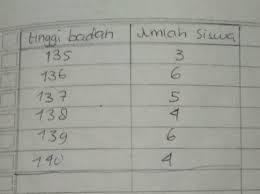 tinggi badan Jumlah Siswa
135 3
136 6
137 5
138 4
139 6
140 4